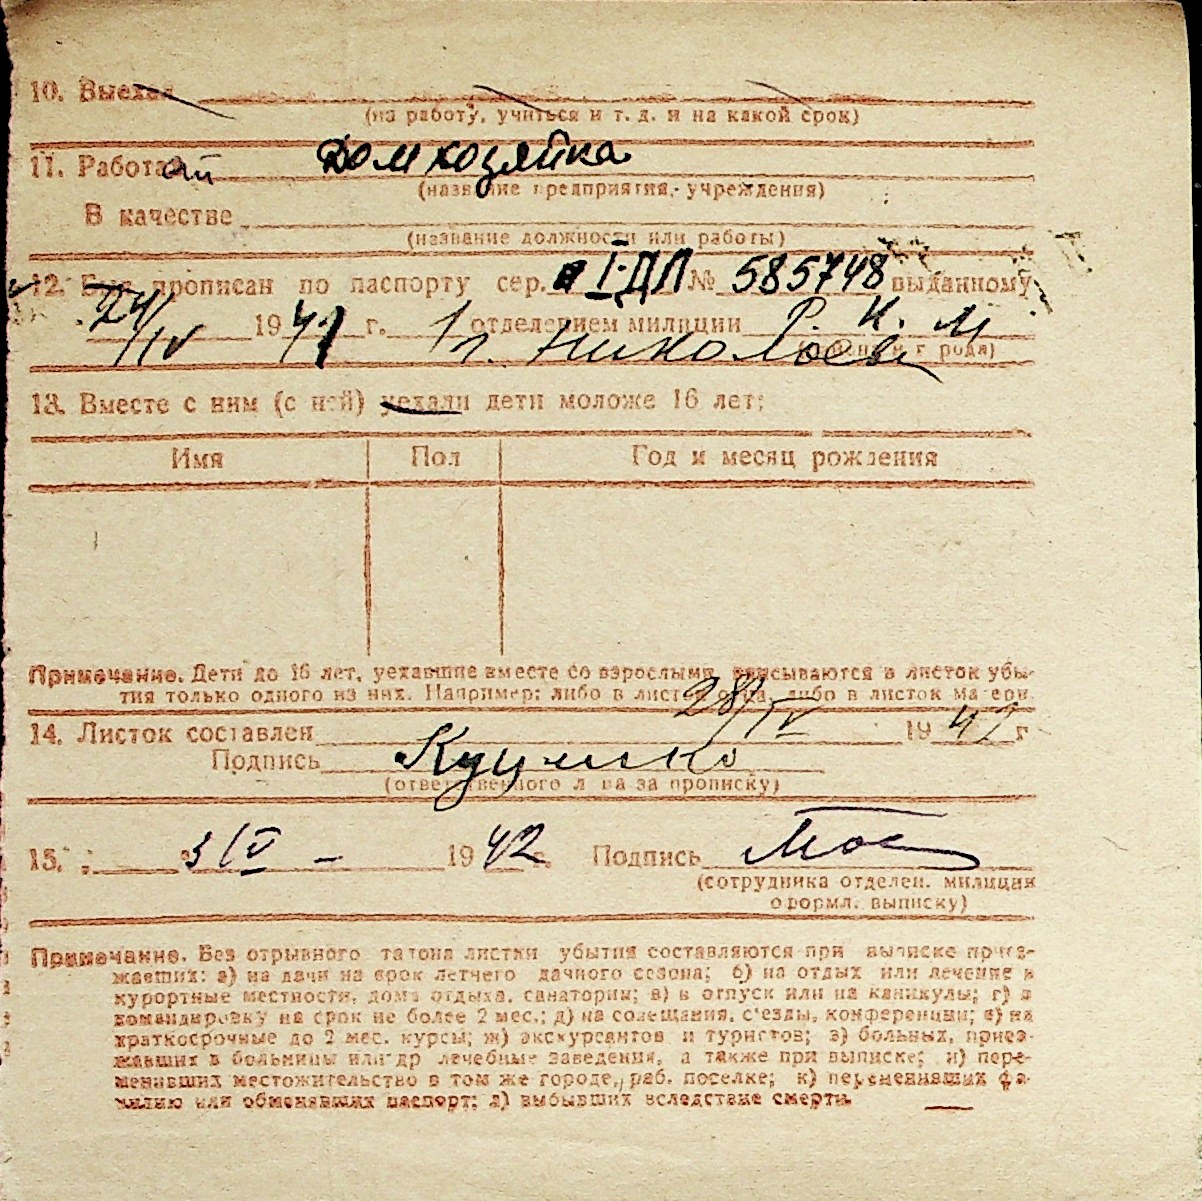 10. Выехал
(на работу, учиться и т. д. и на какой срок)
11. Работает Домхозяйка
(название предприятия, учреждения)
В качестве
(название должности или работы)
12. Был прописан по паспорту сер. I-ДЛ № 585748 выданному
24/IV 1941 г. 1 отделением милиции Р. К. М
г. Николаев
13. Вместе с ним (с ней) уехали дети моложе 16 лет:
Имя Пол Год и месяц рождения
Примечание. Дети до 16 лет, уехавшие вместе со взрослыми, вписываются в листок убы-
тия только одного из них. Например: либо в листок отца, либо в листок матери.
14. Листок составлен 28/IV 1942 г
Подпись Куценко
(ответственного л ца за прописку)
15. 3/V 1942 Подпись
(сотрудника отделен. милиции
оформл. выписку)
Примечание. Без отрывного талона листки убытия составляются при выписке приез-
жавших: а) на дачи на срок летнего дачного сезона; б) на отдых или лечение в
курортные местности, дома отдыха, санатории; в) в отпуск или на каникулы; г) в
командировку на срок не более 2 мес.; д) на совещания, с'езды, конференции; е) на
краткосрочные до 2 мес. курсы; ж) экскурсантов и туристов; з) больных, приез-
жавших в больницы или др лечебные заведения, а также при выписке; и) пере-
менивших местожительство в том же городе, раб. поселке; к) переменивших фа-
милию или обменявших паспорт; л) выбывших вследствие смерти.